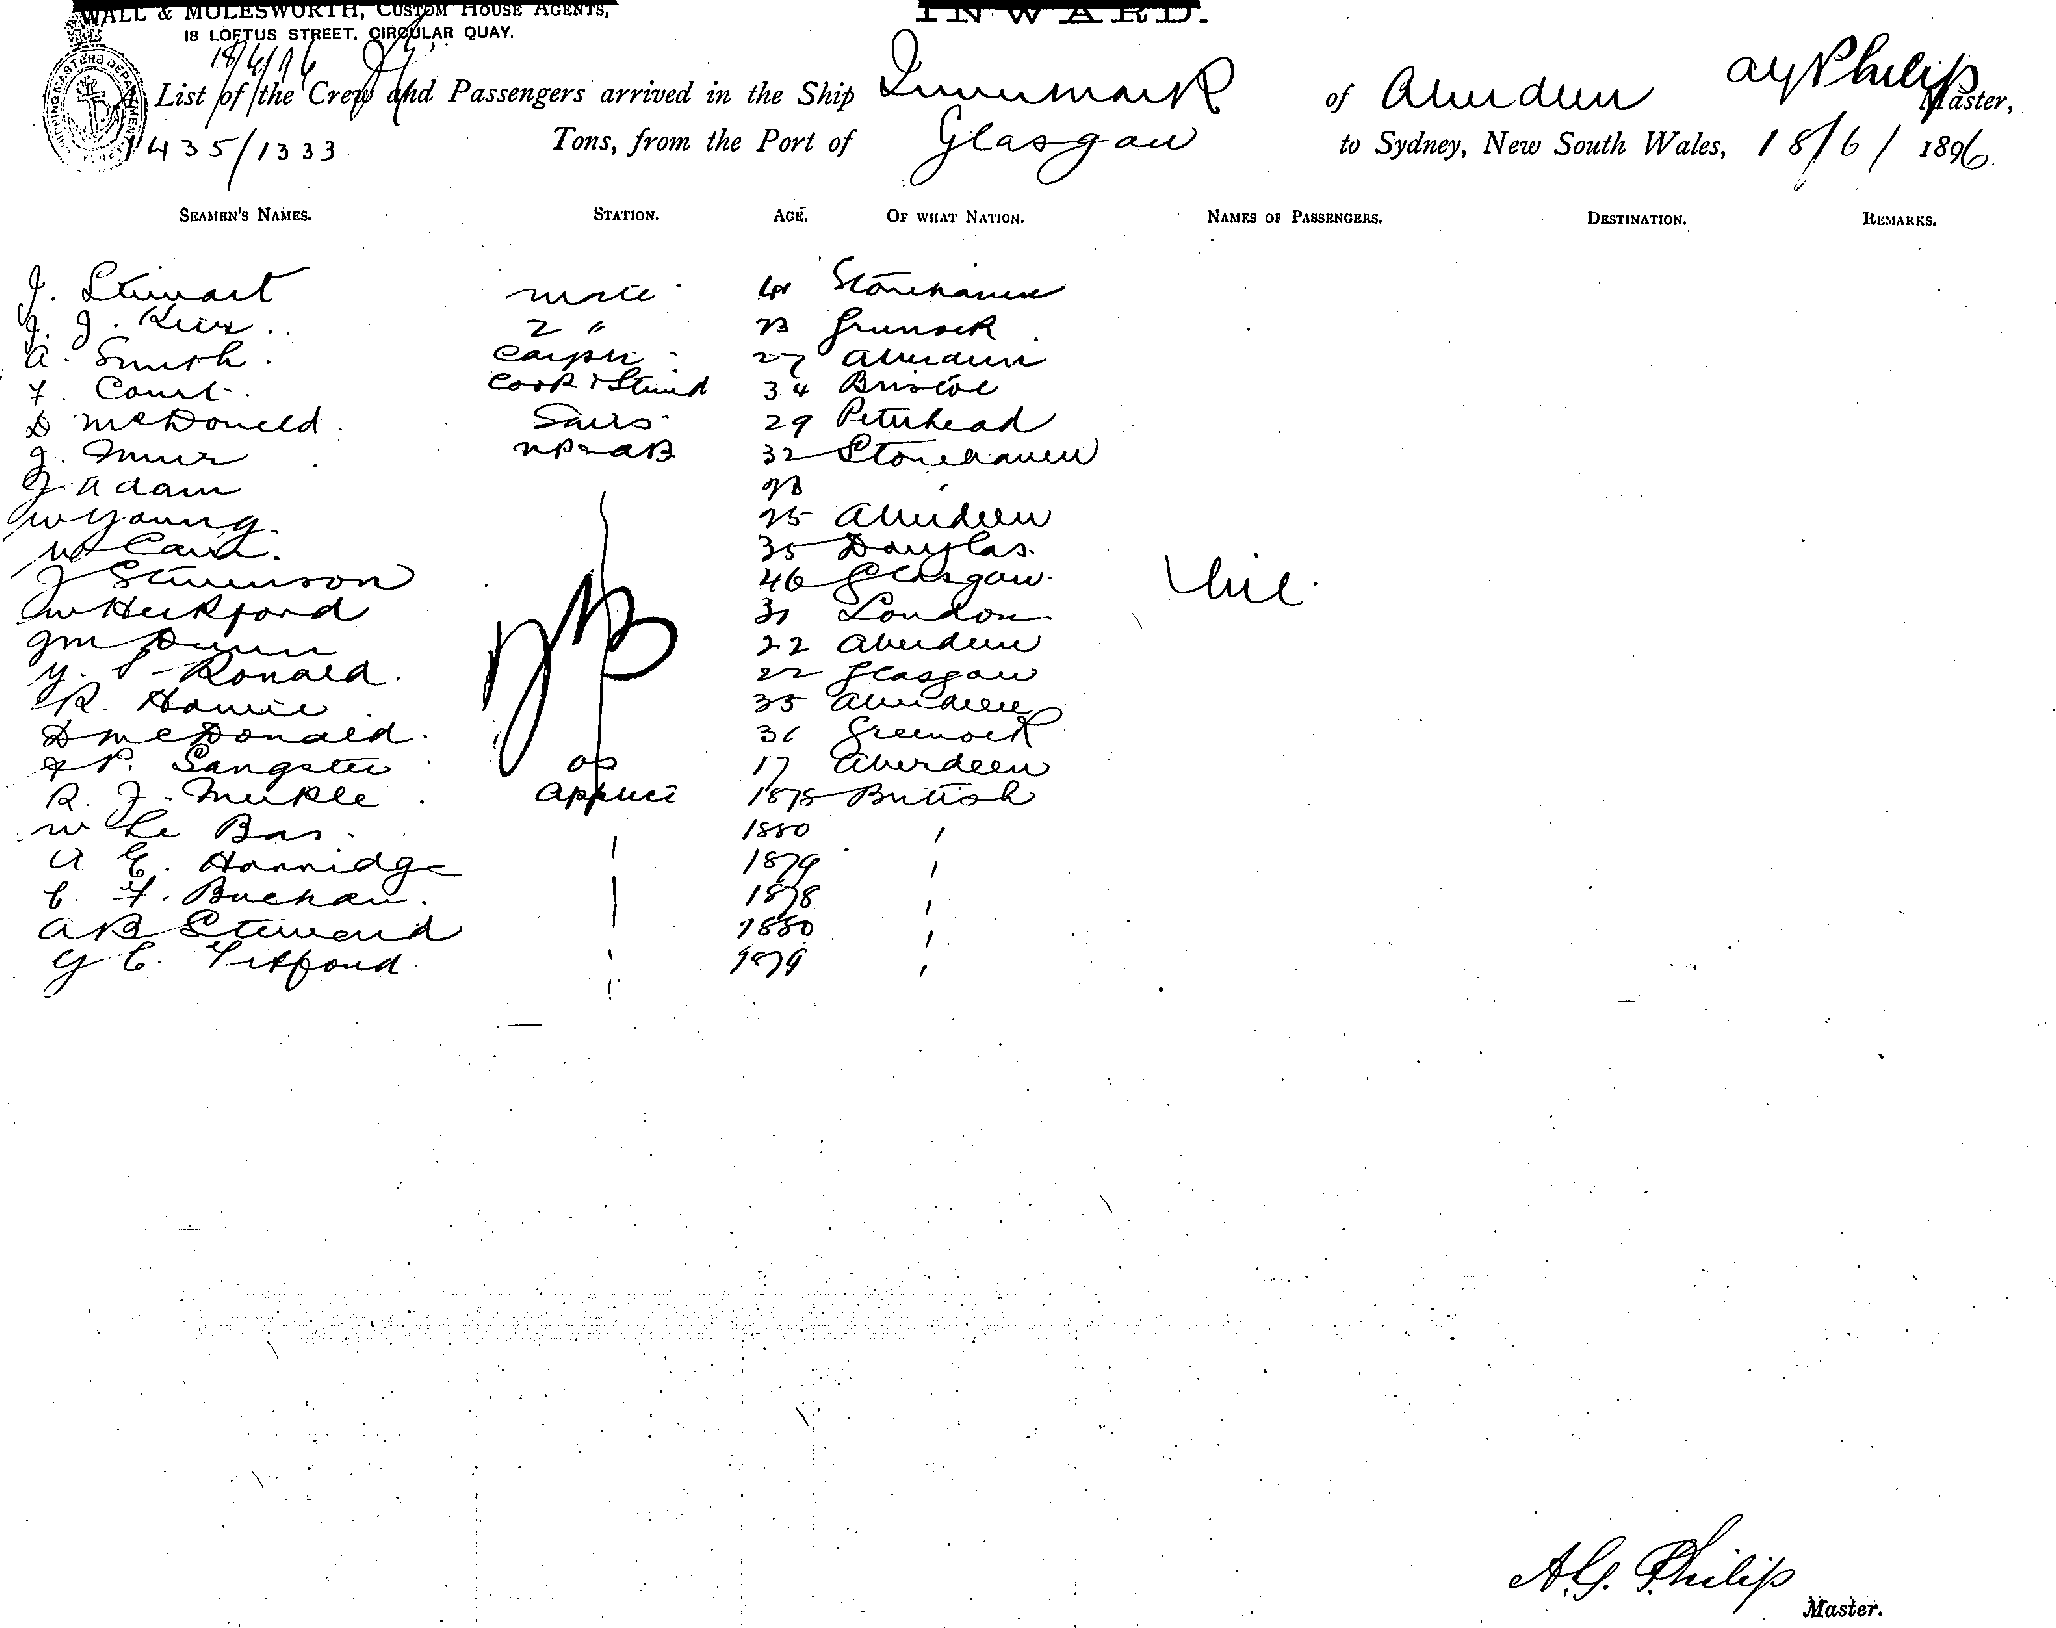 WALL & MOLESWORTH, CUSTOM HOUSE AGENTS,
18 LOFTUS STREET, CIRCULAR QUAY.
INWARD.
18/6/96
A List of the Crew and Passengers arrived in the Ship Invermark of Aberdeen A G Philip Master,
1435/1333 Tons, from the Port of Glasgow to Sydney, New South Wales, 18/6/1896
SEAMEN'S NAMES. STATION. AGE. OF WHAT NATION. NAMES OF PASSENGERS. DESTINATION. REMARKS.
J. Stewart mate Stonehaven
2 " 23 Greenock
A. Smith Carptr 27 Aberdeen
F. Court Cook & Steward 34 Bristol
D McDonald Sails 29 Peterhead
J. Muir AB 32 Stonehaven
J Adam 23
W Young 25 Aberdeen
35 Douglas
J Stevenson 46 Glasgow
W Heckford London
J M Dunn 22 Aberdeen
Ronald 22 Glasgow
R. Howie 35 Aberdeen
D McDonald Greenock
P. Sangster OS 17 Aberdeen
R. J. Meikle Apprice 1878 British
W Le Bas 1880 "
A E. Hannidge 1879 "
C. F. Buchan 1878 "
A B Steward 1880 "
G C. Titford 1879 "
Nil
A. G. Philip
Master.